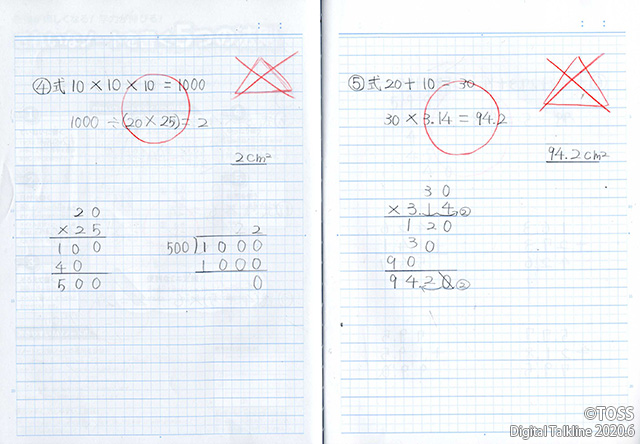 ④式 10×10×10=1000
1000÷(20×25)=2
2cm²
20
×25
100
40
500
2
500)1000
1000
0
⑤式 20+10=30
30×3.14=94.2
94.2cm²
30
×3.14②
120
30
90
94.20②
©TOSS
Digital Talkline 2020.6